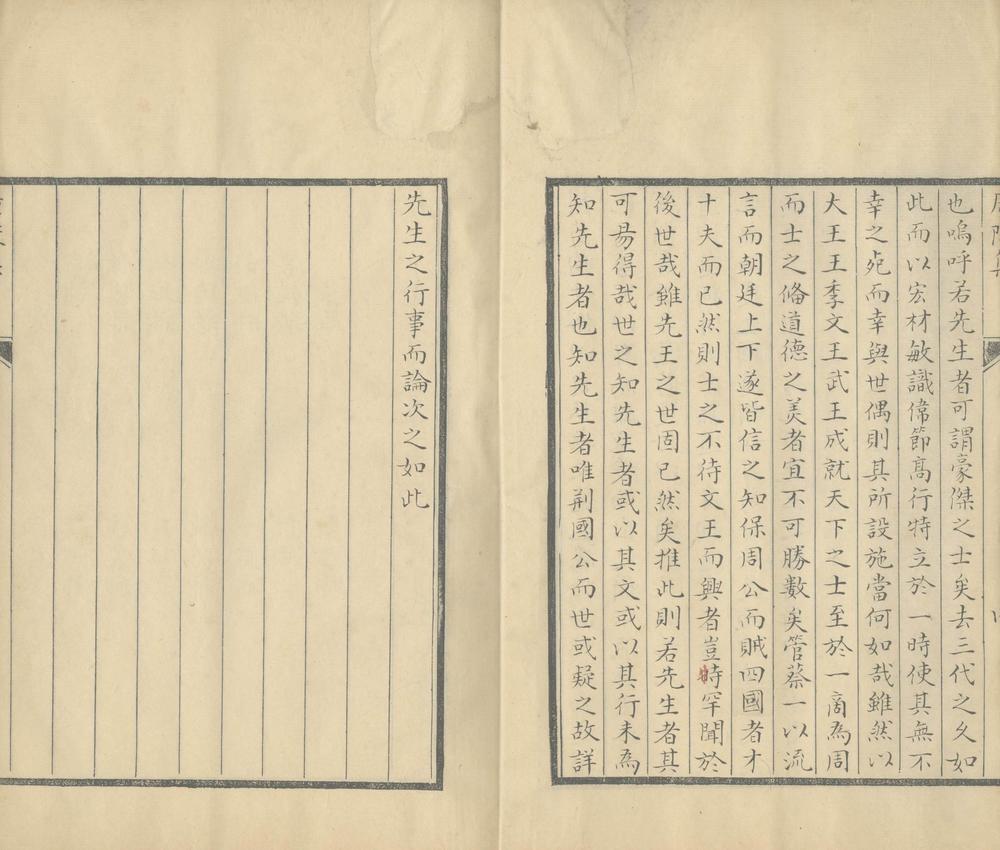 也嗚呼若先生者可謂豪傑之士矣去三代之久如
此而以宏材敏識偉節髙行特立於一時使其無不
幸之疤而幸與世偶則其所設施當何如哉雖然以
大王王季文王武王成就天下之士至於一商為周
而士之俻道德之羙者宜不可勝數矣管蔡一以流
言而朝廷上下遂皆信之知保周公而賊四國者才
十夫而已然則士之不待文王而興者豈特罕聞於
後世哉雖先王之世固已然矣推此則若先生者其
可昜得哉世之知先生者或以其文或以其行未為
知先生者也知先生者唯荆國公而世或疑之故詳
先生之行事而論次之如此